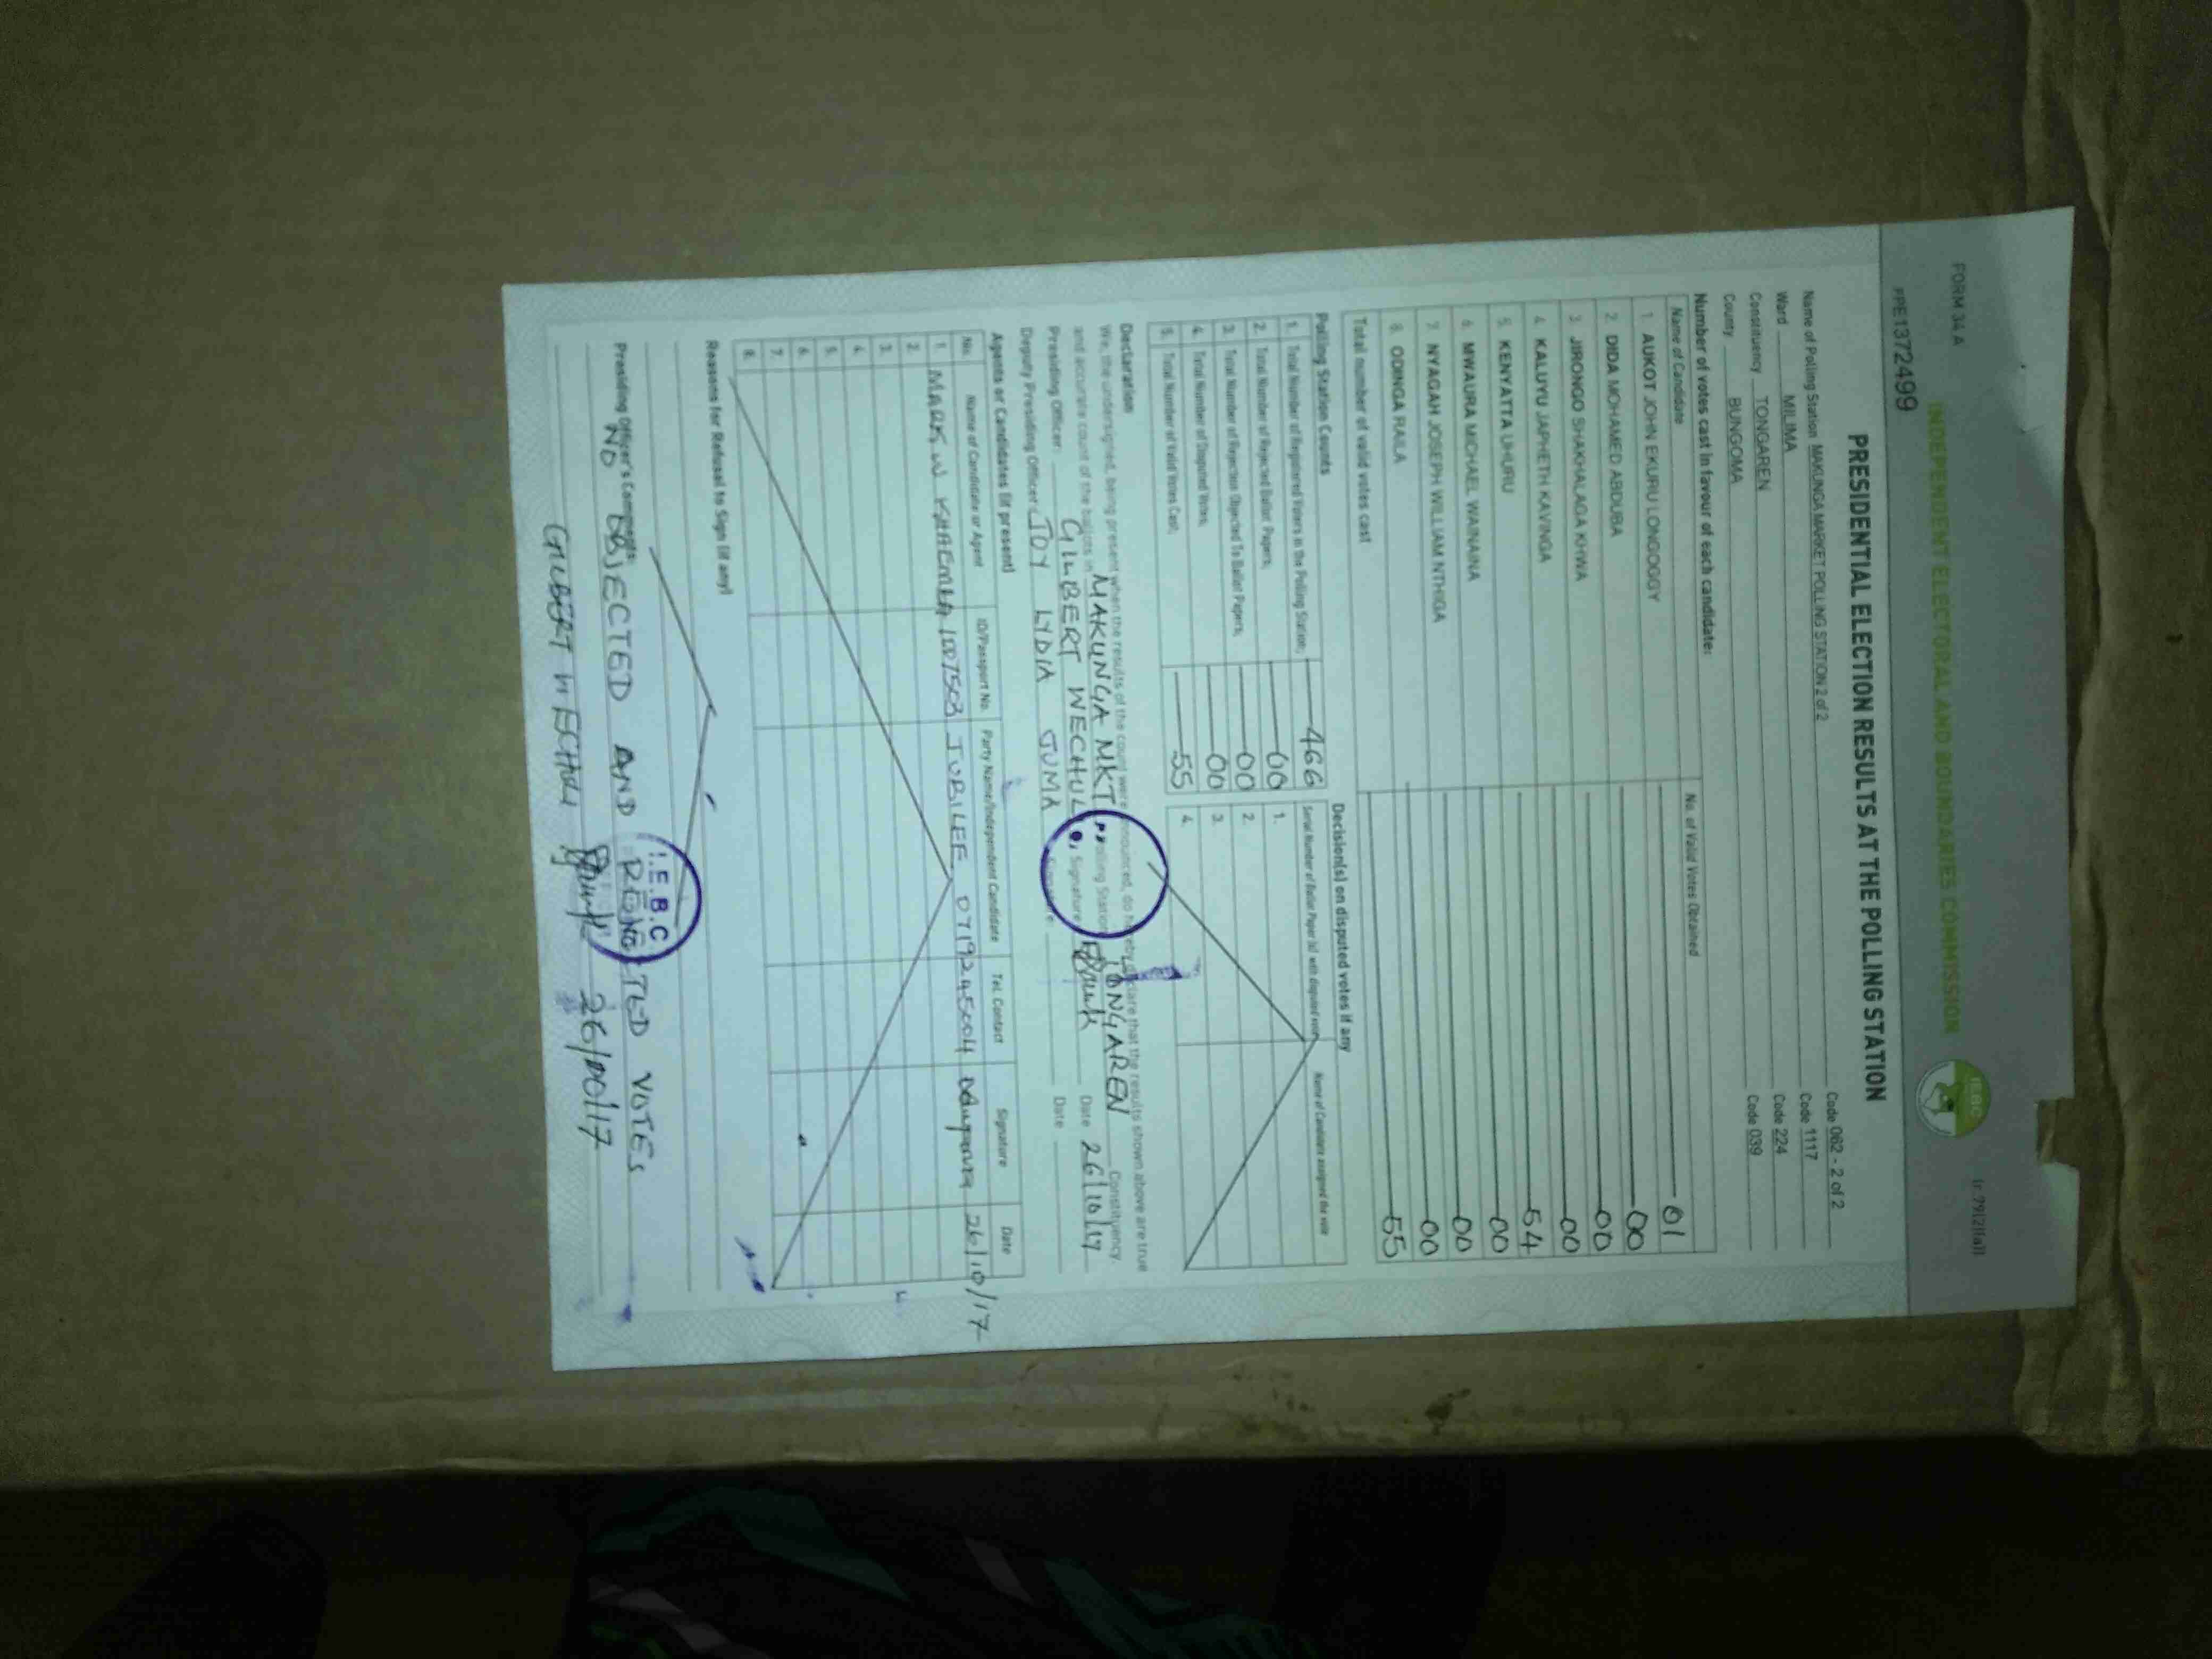 FORM 34 A
r. 79(2)(a)
INDEPENDENT ELECTORAL AND BOUNDARIES COMMISSION
IEBC
PPE1372499
PRESIDENTIAL ELECTION RESULTS AT THE POLLING STATION
Name of Polling Station MAKUNGA MARKET POLLING STATION 2 of 2 Code 062 - 2 of 2
Ward MILIMA Code 1117
Constituency TONGAREN Code 224
County BUNGOMA Code 039
Number of votes cast in favour of each candidate:
Name of Candidate No. of Valid Votes Obtained
1. AUKOT JOHN EKURU LONGOGGY 01
2. DIDA MOHAMED ABDUBA 00
3. JIRONGO SHAKHALAGA KHWA 00
4. KALUYU JAPHETH KAVINGA 00
5. KENYATTA UHURU 54
6. MWAURA MICHAEL WAINAINA 00
7. NYAGAH JOSEPH WILLIAM NTHIGA 00
8. ODINGA RAILA 00
Total number of valid votes cast 55
Polling Station Counts
1. Total Number of Registered Voters in the Polling Station; 466
2. Total Number of Rejected Ballot Papers; 00
3. Total Number of Rejection Objected To Ballot Papers; 00
4. Total Number of Disputed Votes; 00
5. Total Number of Valid Votes Cast; 55
Decision(s) on disputed votes if any
Serial Number of Ballot Paper (s) with disputed vote Name of Candidate assigned the vote
1.
2.
3.
4.
Declaration
We, the undersigned, being present when the results of the count were announced, do hereby declare that the results shown above are true
and accurate count of the ballots in MAKUNGA MKT Polling Station TONGAREN Constituency
Presiding Officer: GILBERT WECHULI Signature Date 26/10/17
Deputy Presiding Officer: JOY LYDIA JUMA Signature Date
Agents or Candidates (if present)
No. Name of Candidate or Agent ID/Passport No. Party Name/Independent Candidate Tel. Contact Signature Date
1. MARK W JUBILEE 0719245004 26/10/17
2.
3.
4.
5.
6.
7.
8.
Reasons for Refusal to Sign (if any)
I.E.B.C
Presiding Officer's Comments:
NO OBJECTED AND VOTES
GILBERT